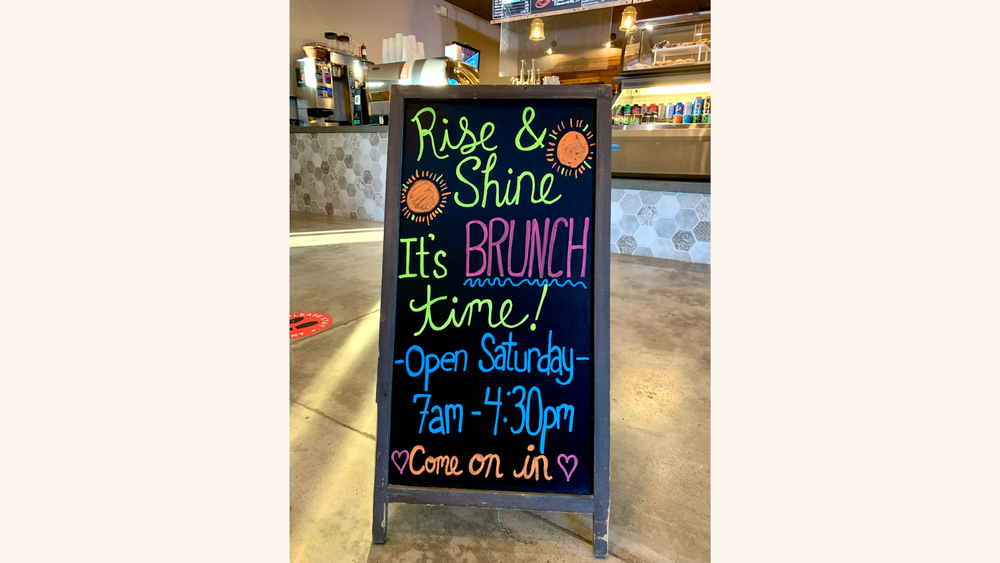 Rise &
Shine
It's BRUNCH
time!
-Open Saturday-
7am - 4:30pm
Come on in